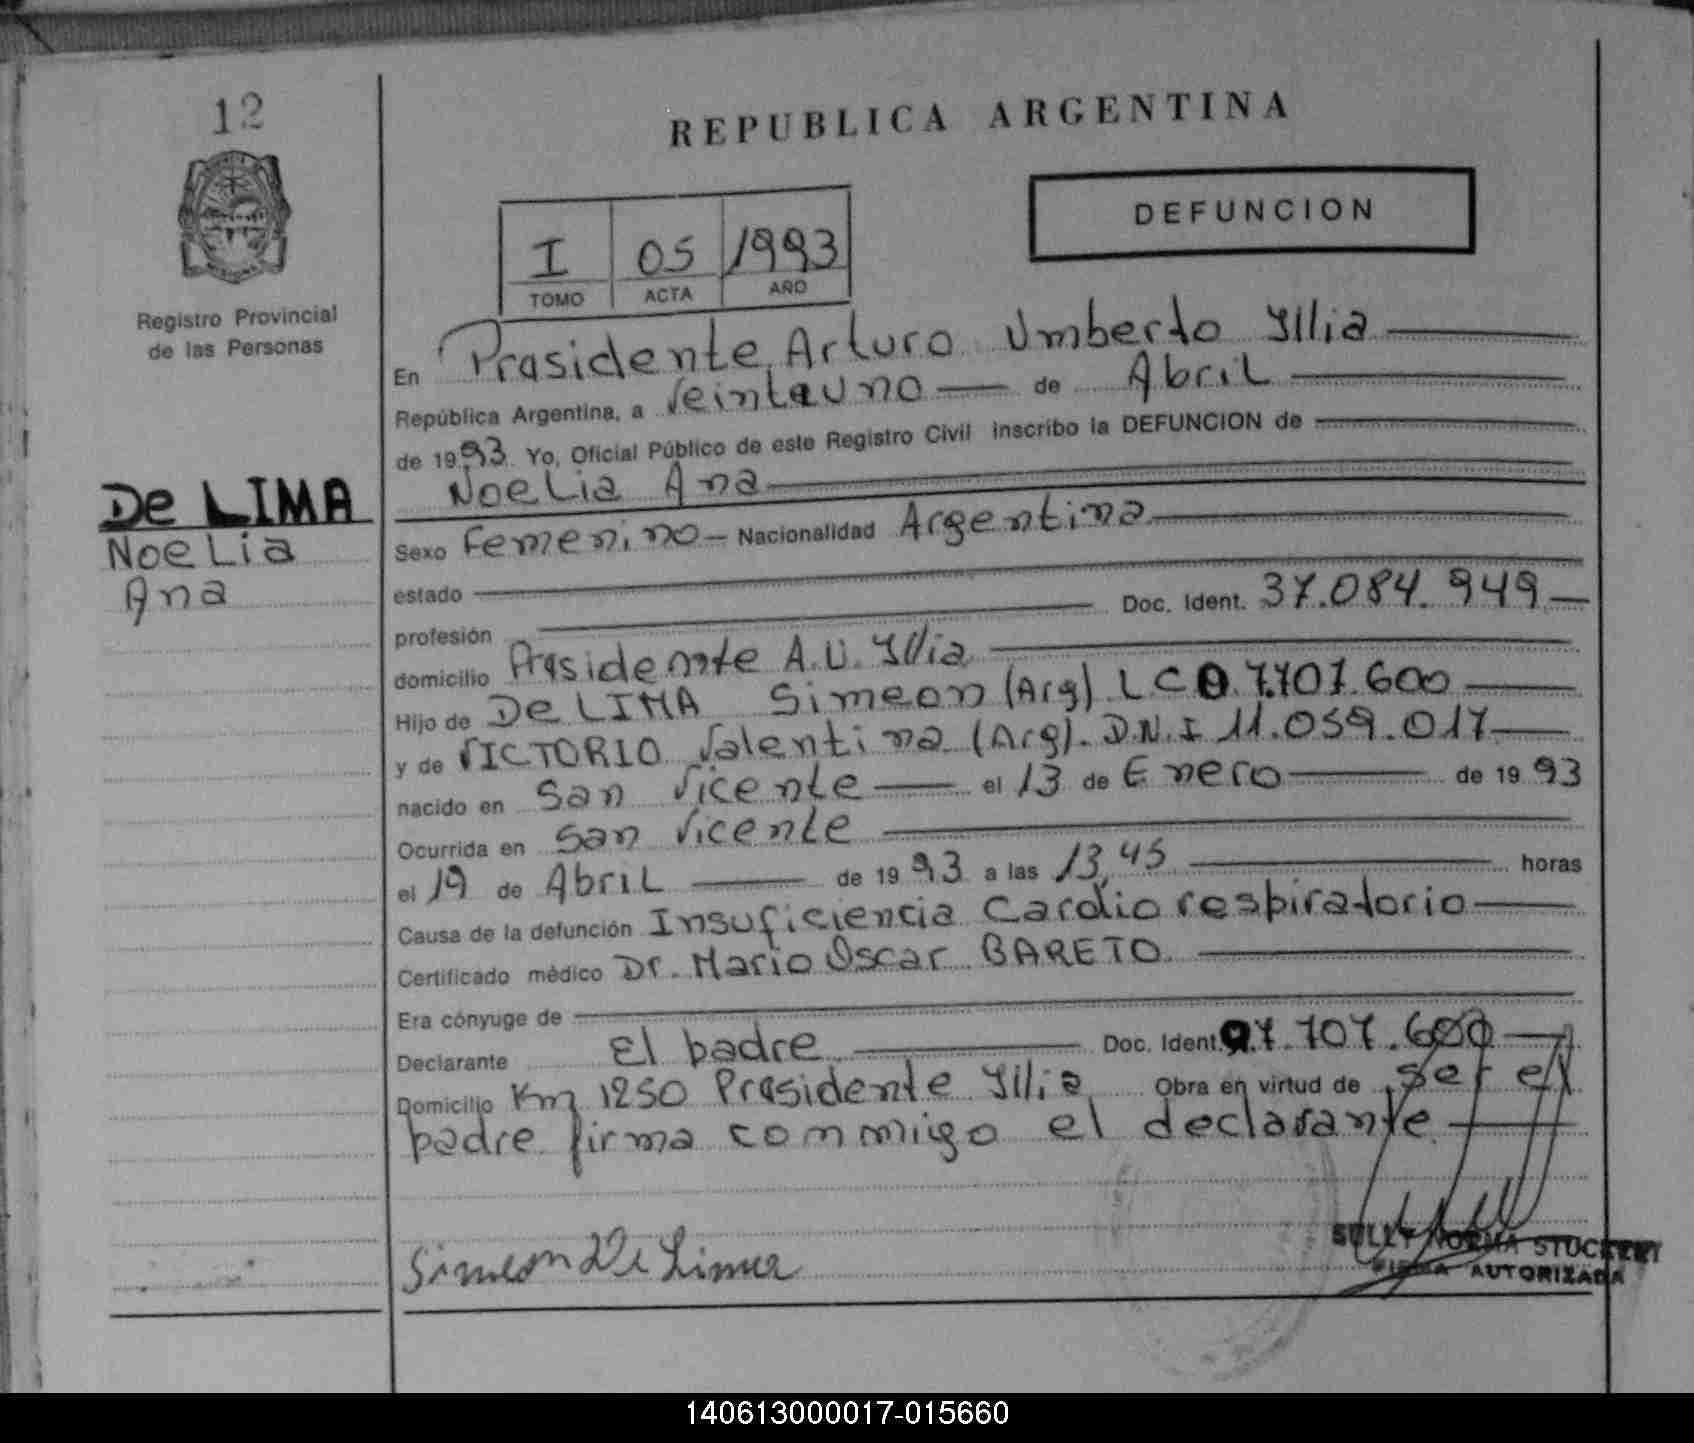 12
Registro Provincial
de las Personas
De LIMA
NoeLia
Ana
REPUBLICA ARGENTINA
DEFUNCION
I 05 1993
TOMO ACTA AÑO
En Presidente Arturo Umberto Yllia
República Argentina, a veintauno de Abril
de 1993 Yo, Oficial Público de este Registro Civil inscribo la DEFUNCION de
NoeLia Ana
Sexo Femenino - Nacionalidad Argentina
estado
profesión Doc. Ident. 37.084.949
domicilio Presidente A.U. Yllia
Hijo de De LIMA Simeon (Arg) L C 07.707.600
y de VICTORIO Valentina (Arg). D.N.I 11.059.017
nacido en San Vicente el 13 de Enero de 1993
Ocurrida en San Vicente
el 19 de AbriL de 1993 a las 13,45 horas
Causa de la defunción Insuficiencia Cardio respiratorio
Certificado médico Dr. Mario Oscar BARETO
Era cónyuge de
Declarante El padre Doc. Ident. 07.707.600
Domicilio Km 1250 Presidente Yllia Obra en virtud de ser el
padre firma conmigo el declarante
Simeon De Lima
SULLY NORMA STUCKERT
FIRMA AUTORIZADA
140613000017-015660